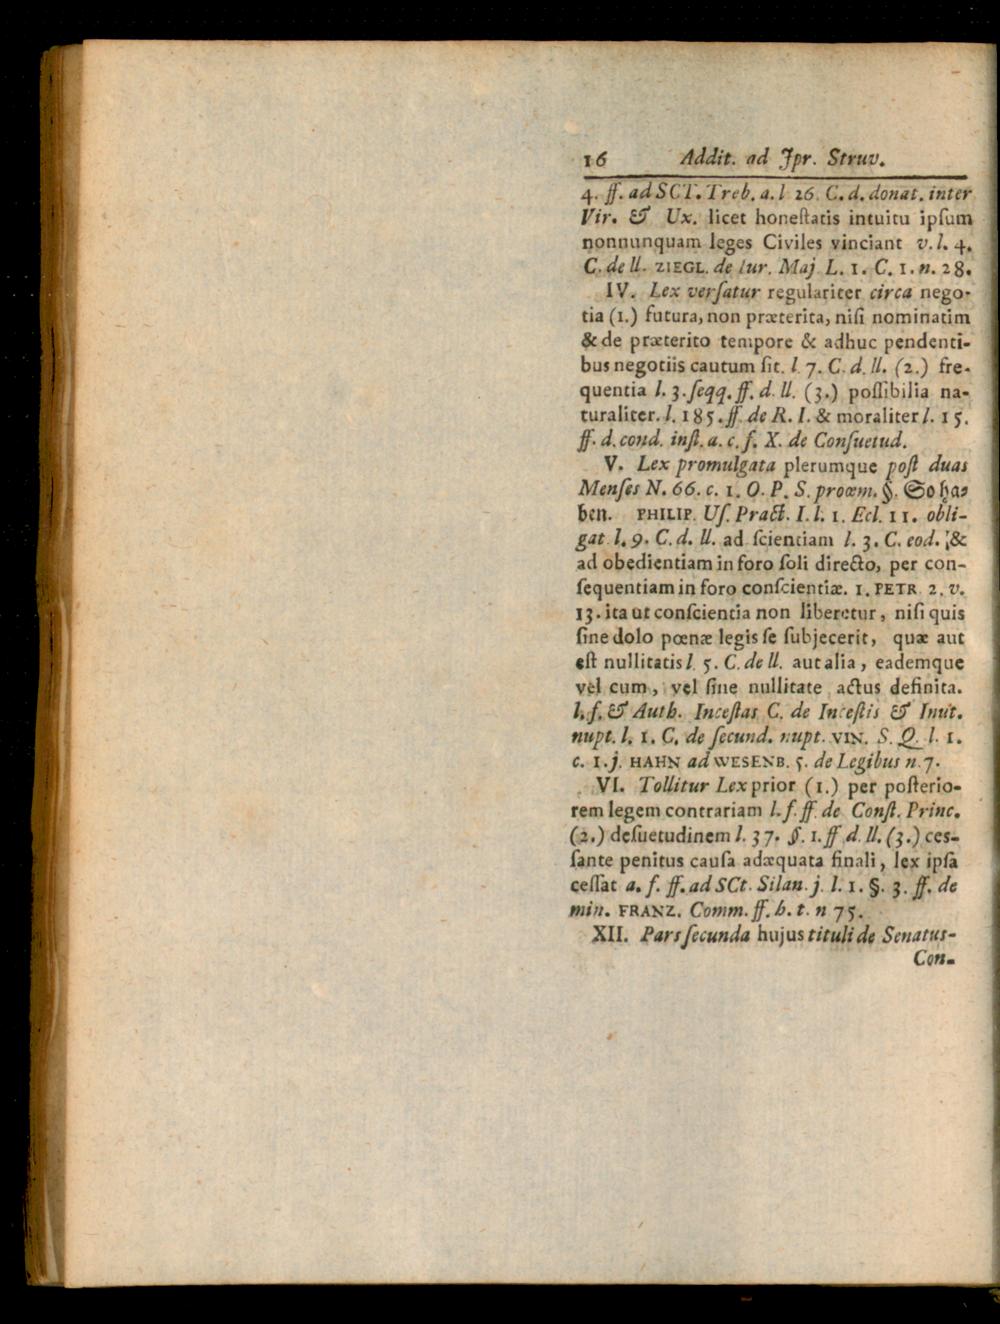 16 Addit. ad Jpr. Struv.
4. ff. ad SCT. Treb. a. l 26. C. d. donat. inter
Vir. & Ux. licet honeſtatis intuitu ipſum
nonnunquam leges Civiles vinciant v. l. 4.
C. de ll. ZIEGL. de Iur. Maj L. 1. C. 1. n. 28.
IV. Lex verſatur regulariter circa nego-
tia (1.) futura, non præterita, niſi nominatim
& de præterito tempore & adhuc pendenti-
bus negotiis cautum ſit. l. 7. C. d. ll. (2.) fre-
quentia l. 3. ſeqq. ff. d. ll. (3.) poſſibilia na-
turaliter. l. 185. ff. de R. I. & moraliter l. 15.
ff. d. cond. inſt. a. c. f. X. de Conſuetud.
V. Lex promulgata plerumque poſt duas
Menſes N. 66. c. 1. O. P. S. proœm. §. So ha-
ben. PHILIP. Uſ. Pract. I. l. 1. Ecl. 11. obli-
gat l. 9. C. d. ll. ad ſcientiam l. 3. C. eod. &
ad obedientiam in foro ſoli directo, per con-
ſequentiam in foro conſcientiæ. 1. PETR. 2. v.
13. ita ut conſcientia non liberetur, niſi quis
ſine dolo pœnæ legis ſe ſubjecerit, quæ aut
eſt nullitatis l. 5. C. de ll. aut alia, eademque
vel cum, vel ſine nullitate actus definita.
l. f. & Auth. Inceſtas C. de Inceſtis & Inut.
nupt. l. 1. C. de ſecund. nupt. VIN. S. Q. l. 1.
c. 1. j. HAHN ad WESENB. 5. de Legibus n. 7.
VI. Tollitur Lex prior (1.) per poſterio-
rem legem contrariam l. f. ff. de Conſt. Princ.
(2.) deſuetudinem l. 37. §. 1. ff. d. ll. (3.) ceſ-
ſante penitus cauſa adæquata finali, lex ipſa
ceſſat a. f. ff. ad SCt. Silan. j. l. 1. §. 3. ff. de
min. FRANZ. Comm. ff. h. t. n 75.
XII. Pars ſecunda hujus tituli de Senatus-
Con-